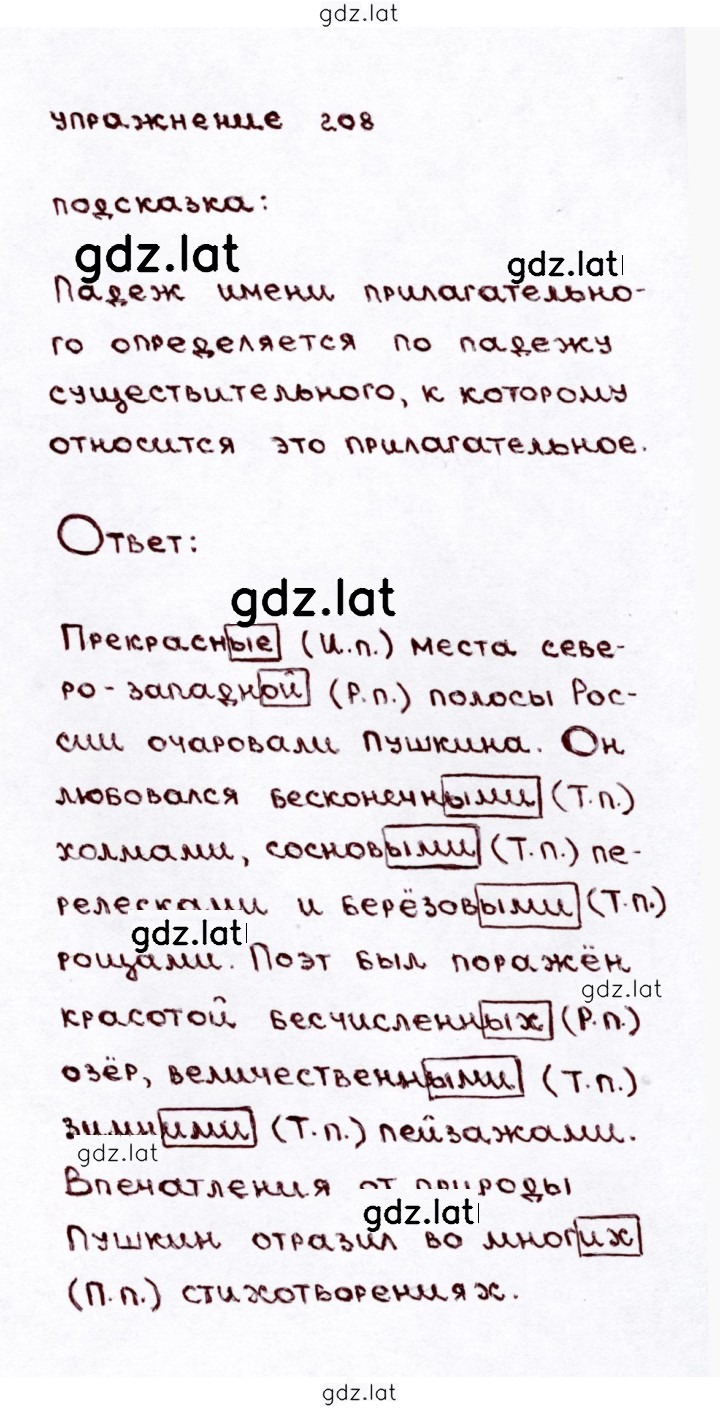 gdz.lat
упражнение 208
подсказка:
gdz.lat
gdz.lat
Падеж имени прилагательно-
го определяется по падежу
существительного, к которому
относится это прилагательное.
Ответ:
gdz.lat
Прекрасные (И.п.) места севе-
ро-западной (Р.п.) полосы Рос-
сии очаровали Пушкина. Он
любовался бесконечными (Т.п.)
холмами, сосновыми (Т.п.) пе-
релесками и берёзовыми (Т.п.)
gdz.lat
рощами. Поэт был поражён
gdz.lat
красотой бесчисленных (Р.п.)
озёр, величественными (Т.п.)
зимними (Т.п.) пейзажами.
gdz.lat
Впечатления от природы
gdz.lat
Пушкин отразил во многих
(П.п.) стихотворениях.
gdz.lat